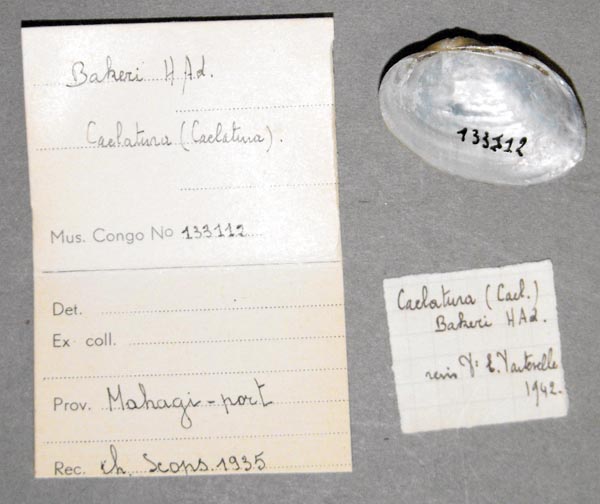 Bakeri H Ad.
Caelatura (Caelatura).
Mus. Congo No 133112
Det.
Ex coll.
Prov. Mahagi-port
Rec. ch. Scops. 1935
133112
Caelatura (Cael.)
Bakeri H Ad.
1942.